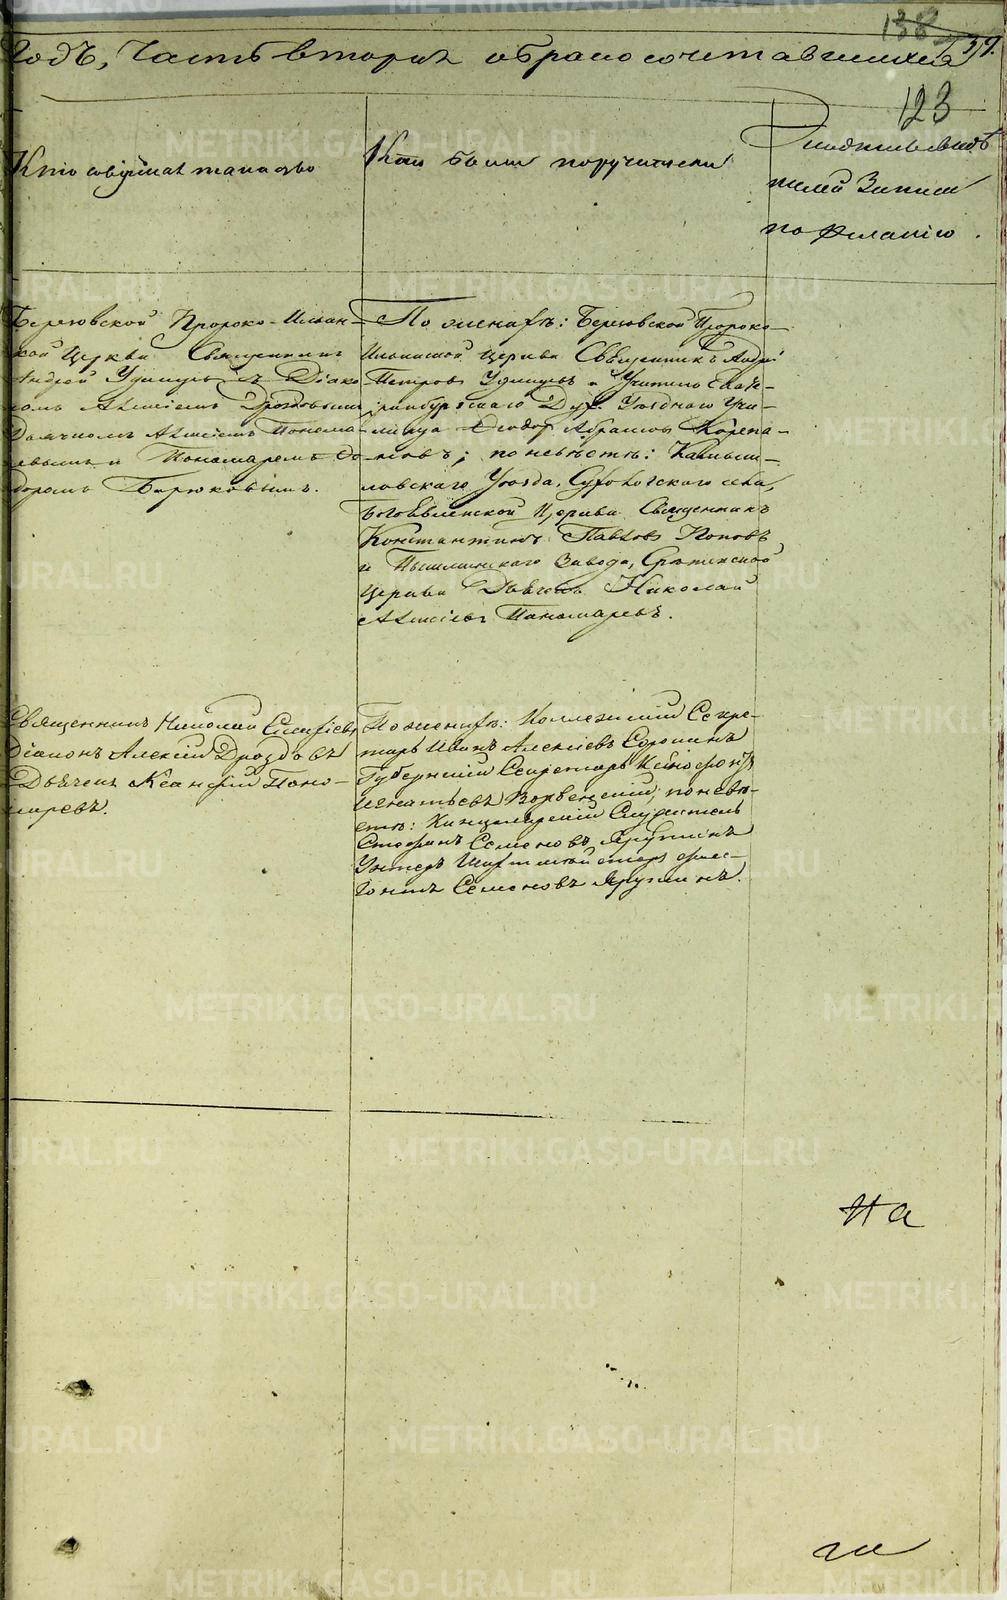 138
139.
годъ, Часть вторая о бракосочетавшихся
123
Кто совершал таинство
Кто были поручители
Подпись свидѣ-
телей записи
по желанію.
Березовской Пророко-Ильин-
ской Церкви Священникъ
Андрей Удинцевъ съ Діако-
номъ Алексіемъ Дроздовымъ
Дьячкомъ Алексіемъ Понома-
ревымъ и Пономаремъ
Бирюковымъ.
По женихѣ: Березовской Пророко-
Ильинской церкви Священникъ Андрей
Петровъ Удинцевъ и Учитель Екате-
ринбургскаго Дух. Уезднаго Учи-
лища Ѳеодор Абрамов
; по невѣстѣ: Камыш-
ловскаго Уезда, Суховскаго села,
Богоявленской Церкви Священникъ
Константинъ Павловъ Поповъ
и Пышминскаго Завода, Срѣтенской
церкви Дьячекъ Николай
Алексіевъ Пономаревъ.
Священникъ Николай
Діаконъ Алексій Дроздовъ
Дьячекъ Поно-
маревъ.
По женихѣ: Коллежскій Секре-
тарь Иванъ Алексіевъ Сорокинъ
Губернскій Секретарь Ксенофонтъ
Игнатьевъ; по невѣ-
стѣ: Канцелярскій Служитель
Стефанъ Семеновъ Ярутинъ
Унтеръ Шихтмейстеръ
Семеновъ Ярутинъ.
На